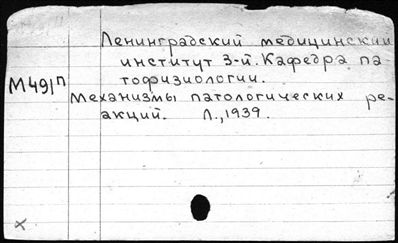 Ленинградский медицинский
институт 3-й. Кафедра па-
тофизиологии.
М491п
Механизмы патологических ре-
акций. Л., 1939.
x